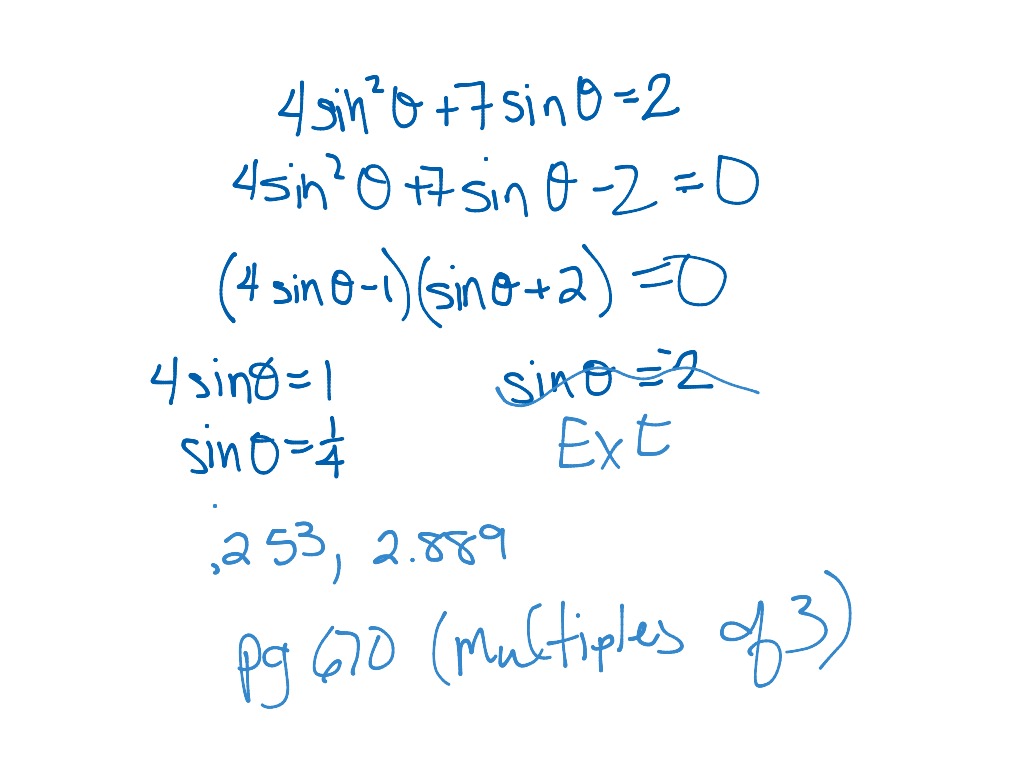 4sin²θ+7sinθ=2
4sin²θ+7sinθ-2=0
(4sinθ-1)(sinθ+2)=0
4sinθ=1 sinθ=-2
sinθ=1/4 Ext
.253, 2.889
pg 670 (multiples of 3)